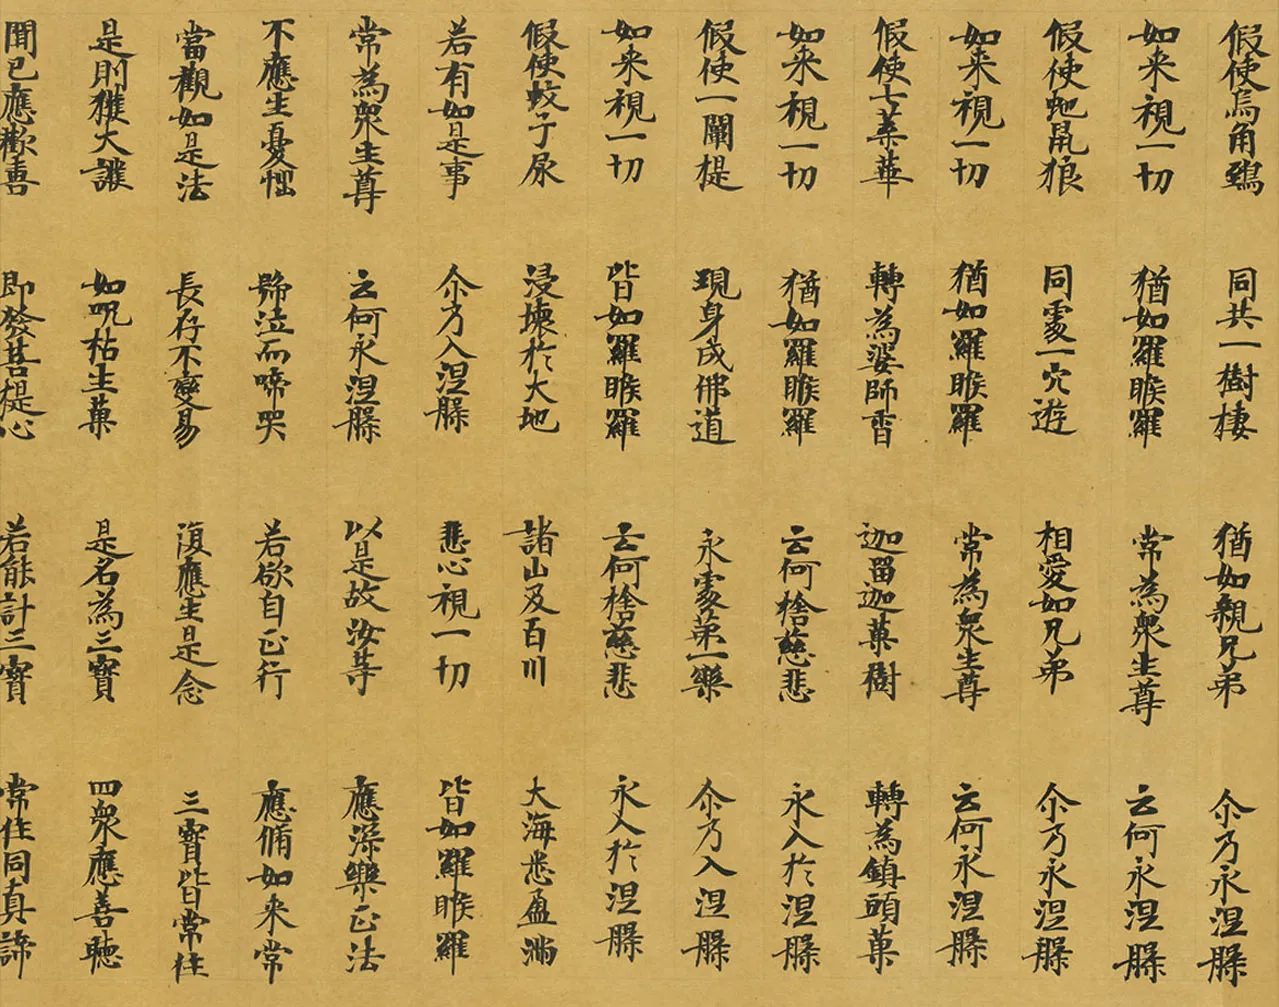 假使烏角鵄 同共一樹棲 猶如親兄弟 尒乃永涅槃
如来視一切 猶如羅睺羅 常為眾生尊 云何永涅槃
假使虵鼠狼 同處一穴遊 相愛如兄弟 尒乃永涅槃
如来視一切 猶如羅睺羅 常為眾生尊 云何永涅槃
假使七葉華 轉為婆師香 迦留迦菓樹 轉為鎮頭菓
如来視一切 猶如羅睺羅 云何捨慈悲 永入於涅槃
假使一闡提 現身成佛道 永處第一樂 尒乃入涅槃
如来視一切 皆如羅睺羅 云何捨慈悲 永入於涅槃
假使蚊子尿 浸壞於大地 諸山及百川 大海悉盈滿
若有如是事 尒乃入涅槃 悲心視一切 皆如羅睺羅
常為眾生尊 云何永涅槃 以是故汝等 應深樂正法
不應生憂惱 號泣而啼哭 若欲自正行 應脩如来常
當觀如是法 長存不變易 復應生是念 三寶皆常住
是則獲大護 如呪枯生菓 是名為三寶 四眾應善聽
聞已應歡喜 即發菩提心 若能計三寶 常住同真諦